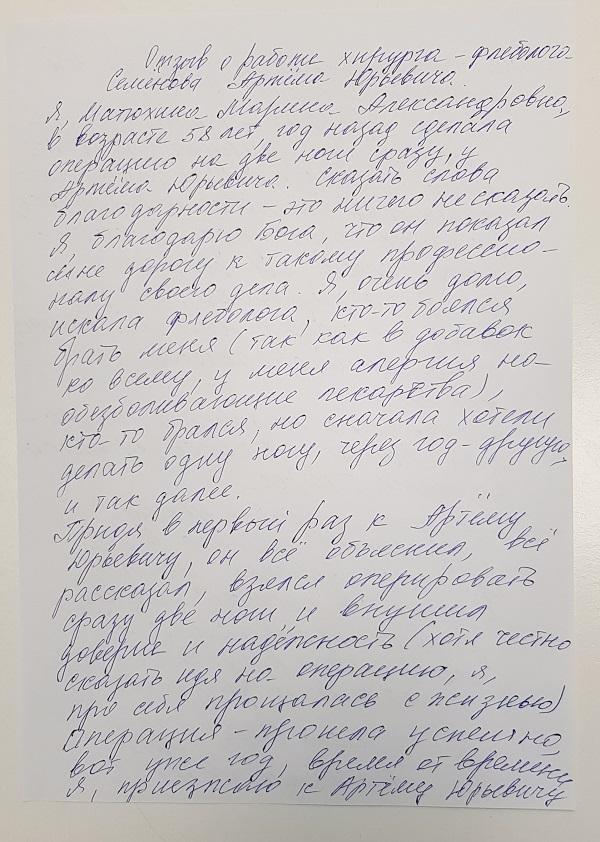 Отзыв о работе хирурга-флеболога
Семёнова Артёма Юрьевича.
Я, Матюхина Марина Александровна,
в возрасте 58 лет, год назад сделала
операцию на две ноги сразу, у
Артёма Юрьевича. Сказать слова
благодарности - это ничего не сказать.
Я, благодарю Бога, что он показал
мне дорогу к такому профессио-
налу своего дела. Я, очень долго,
искала флеболога, кто-то боялся
брать меня (так как в добавок
ко всему, у меня алергия на
обезболивающие лекарства),
кто-то брался, но сначала хотели
делать одну ногу, через год-другую,
и так далее.
Придя в первый раз к Артёму
Юрьевичу, он всё объяснил, всё
рассказал, взялся оперировать
сразу две ноги и внушил
доверие и надёжность (хотя честно
сказать идя на операцию, я,
про себя прощалась с жизнью)
Операция - прошла успешно,
вот уже год, время от времени
я, приезжаю к Артёму Юрьевичу